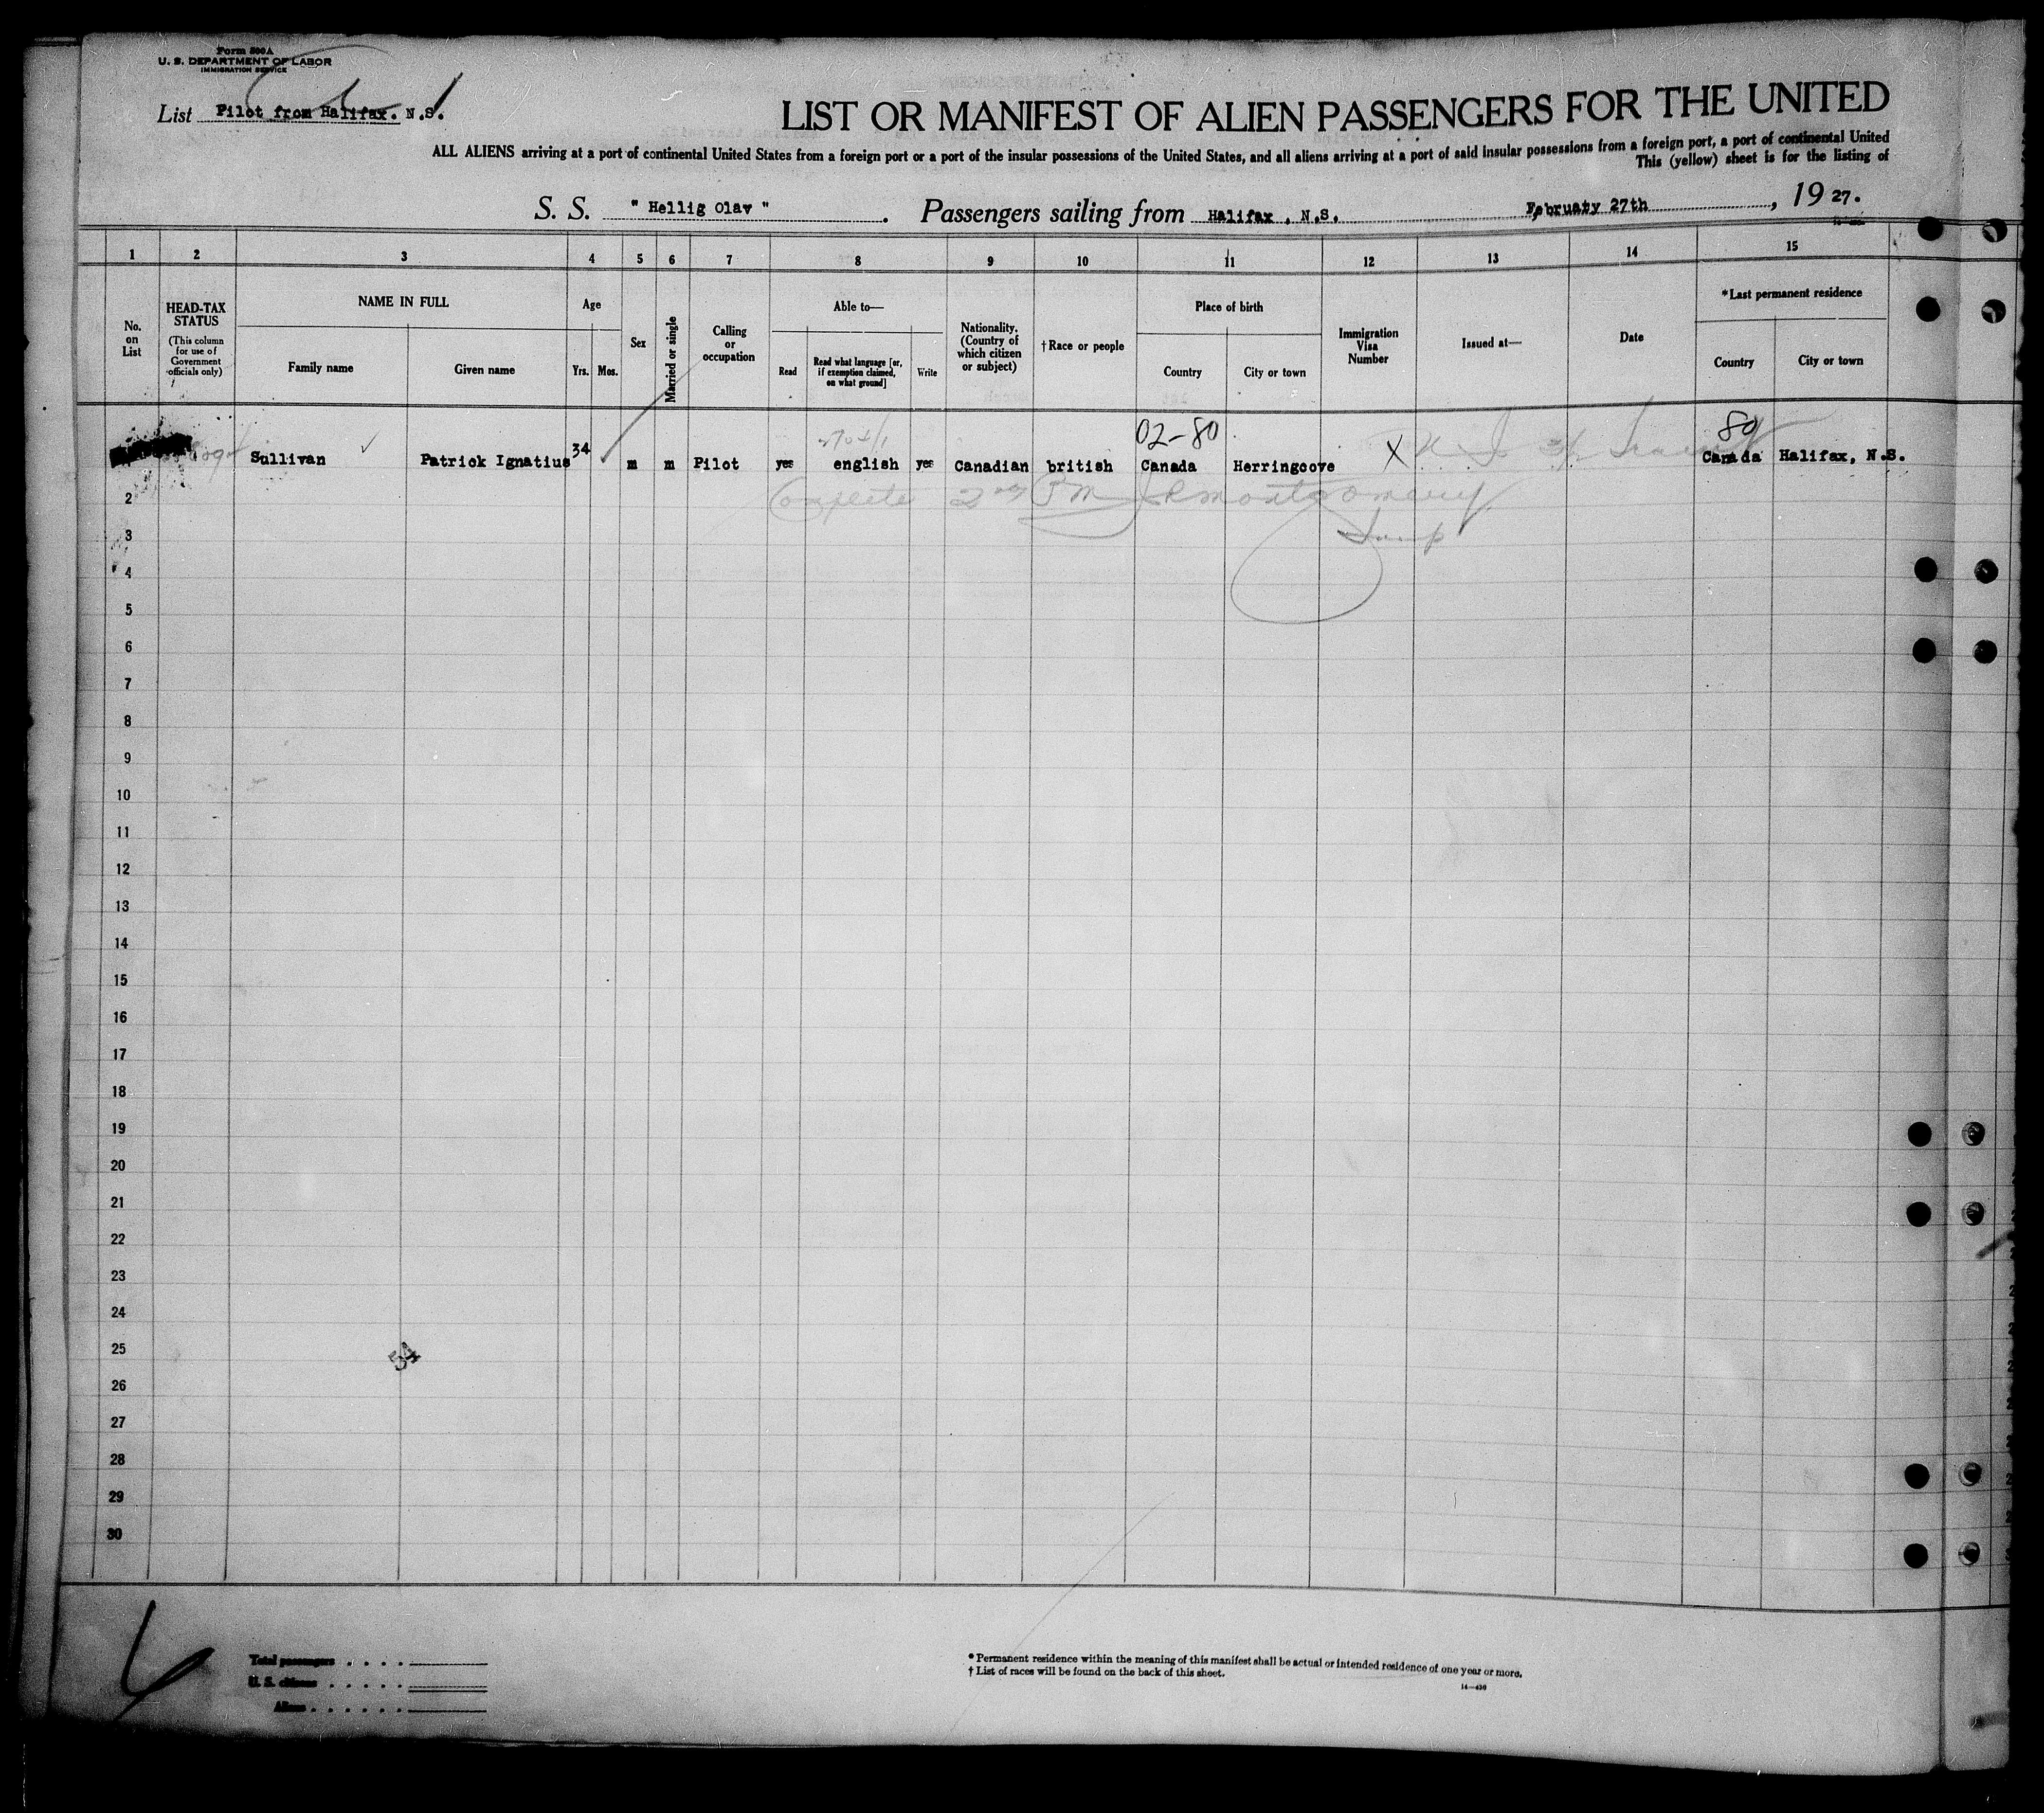 Form 500A
U. S. DEPARTMENT OF LABOR
IMMIGRATION SERVICE
List Pilot from Halifax. N.S.
LIST OR MANIFEST OF ALIEN PASSENGERS FOR THE UNITED
ALL ALIENS arriving at a port of continental United States from a foreign port or a port of the insular possessions of the United States, and all aliens arriving at a port of said insular possessions from a foreign port, a port of continental United
This (yellow) sheet is for the listing of
S. S. " Hellig Olav ". Passengers sailing from Halifax , N.S. February 27th , 19 27.
1 2 3 4 5 6 7 8 9 10 11 12 13 14 15
No. on List
HEAD-TAX STATUS
(This column for use of Government officials only)
NAME IN FULL
Family name
Given name
Age
Yrs. Mos.
Sex
Married or single
Calling or occupation
Able to—
Read
Read what language [or, if exemption claimed, on what ground]
Write
Nationality. (Country of which citizen or subject)
†Race or people
Place of birth
Country
City or town
Immigration Visa Number
Issued at—
Date
*Last permanent residence
Country
City or town
02-80 80
Sullivan Patrick Ignatius 34 m m Pilot yes english yes Canadian british Canada Herringcove X Canada Halifax, N.S.
2 2nd Montgomery
3
4
5
6
7
8
9
10
11
12
13
14
15
16
17
18
19
20
21
22
23
24
25
54
26
27
28
29
30
Total passengers
U. S. citizens
Aliens
* Permanent residence within the meaning of this manifest shall be actual or intended residence of one year or more.
† List of races will be found on the back of this sheet.
14—430